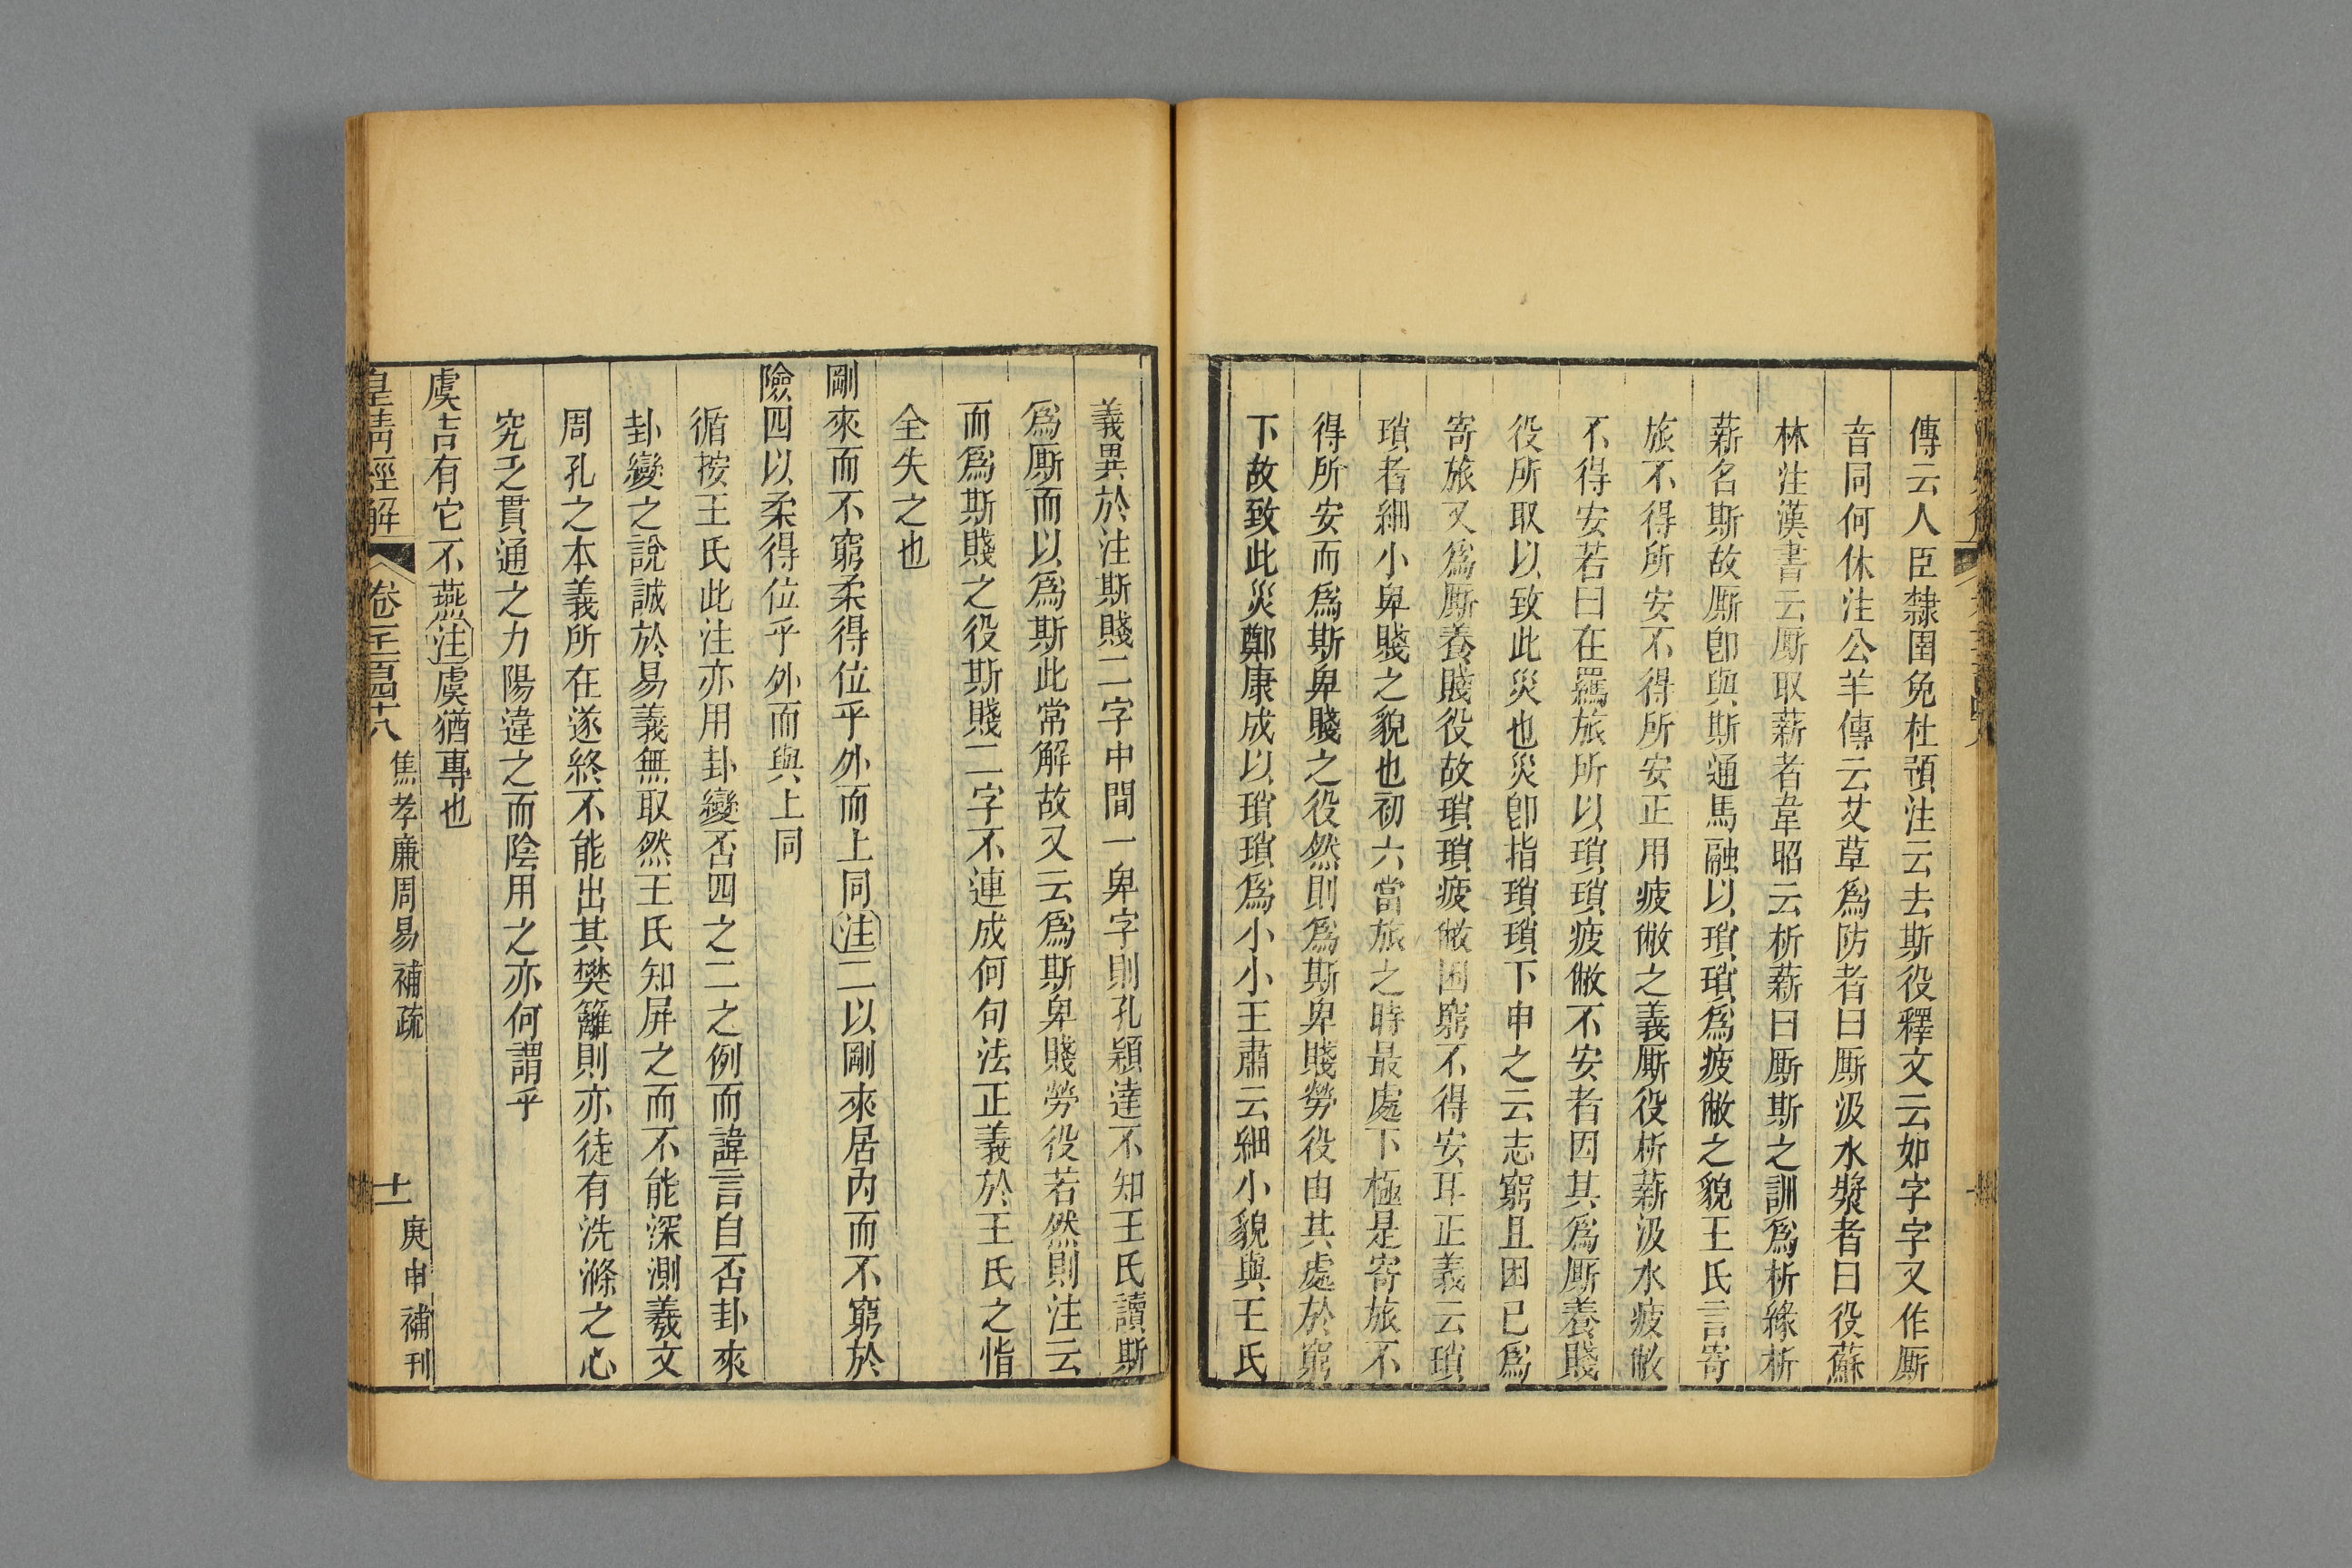 傳云人臣隸圉免杜預注云去斯役釋文云如字字又作厮
音同何休注公羊傳云艾草爲防者曰厮汲水漿者曰役蘇
林注漢書云厮取薪者韋昭云析薪曰厮斯之訓爲析緣析
薪名斯故厮卽與斯通馬融以瑣瑣爲疲㢢之貌王氏言寄
旅不得所安不得所安正用疲㢢之義厮役析薪汲水疲㢢
不得安若曰在羈旅所以瑣瑣疲㢢不安者因其爲厮養賤
役所取以致此災也災卽指瑣瑣下申之云志窮且困已爲
寄旅又爲厮養賤役故瑣瑣疲㢢困窮不得安耳正義云瑣
瑣者細小卑賤之貌也初六當旅之時最處下極是寄旅不
得所安而爲斯卑賤之役然則爲斯卑賤勞役由其處於窮
下故致此災鄭康成以瑣瑣爲小小王肅云細小貌與王氏
義異於注斯賤二字中間一卑字則孔穎達不知王氏讀斯
爲厮而以爲斯此常解故又云爲斯卑賤勞役若然則注云
而爲斯賤之役斯賤二字不連成何句法正義於王氏之恉
全失之也
剛來而不窮柔得位乎外而上同注二以剛來居內而不窮於
險四以柔得位乎外而與上同
循按王氏此注亦用卦變否四之二之例而諱言自否卦來
卦變之說誠於易義無取然王氏知屏之而不能深測羲文
周孔之本義所在遂終不能出其樊籬則亦徒有洗滌之心
究乏貫通之力陽違之而陰用之亦何謂乎
虞吉有它不燕注虞猶專也
皇淸經解 卷一千一百四十八 焦孝廉周易補疏 十一 庚申補刊